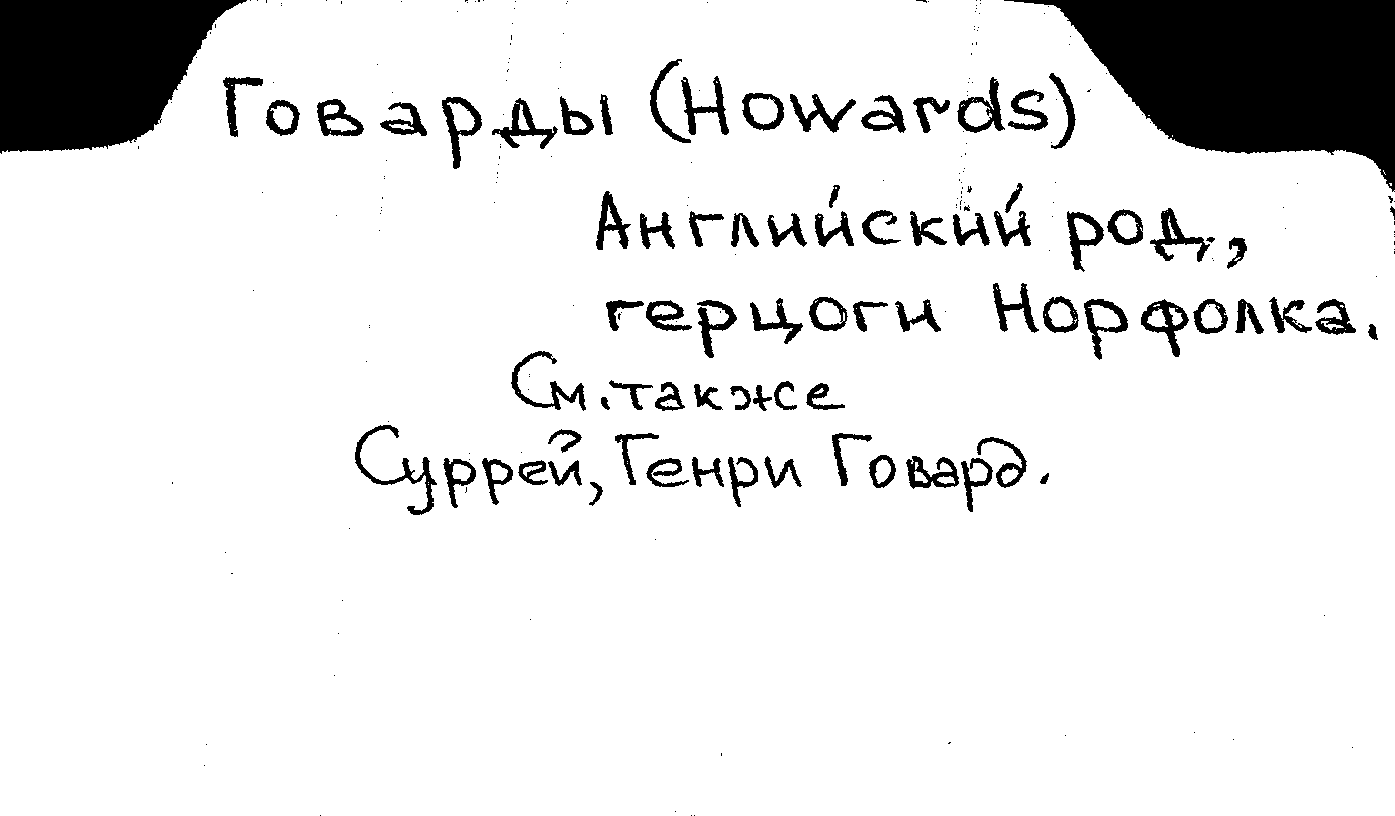 Говарды (Howards)
Английский род,
герцоги Норфолка.
См. также
Суррей, Генри Говард.